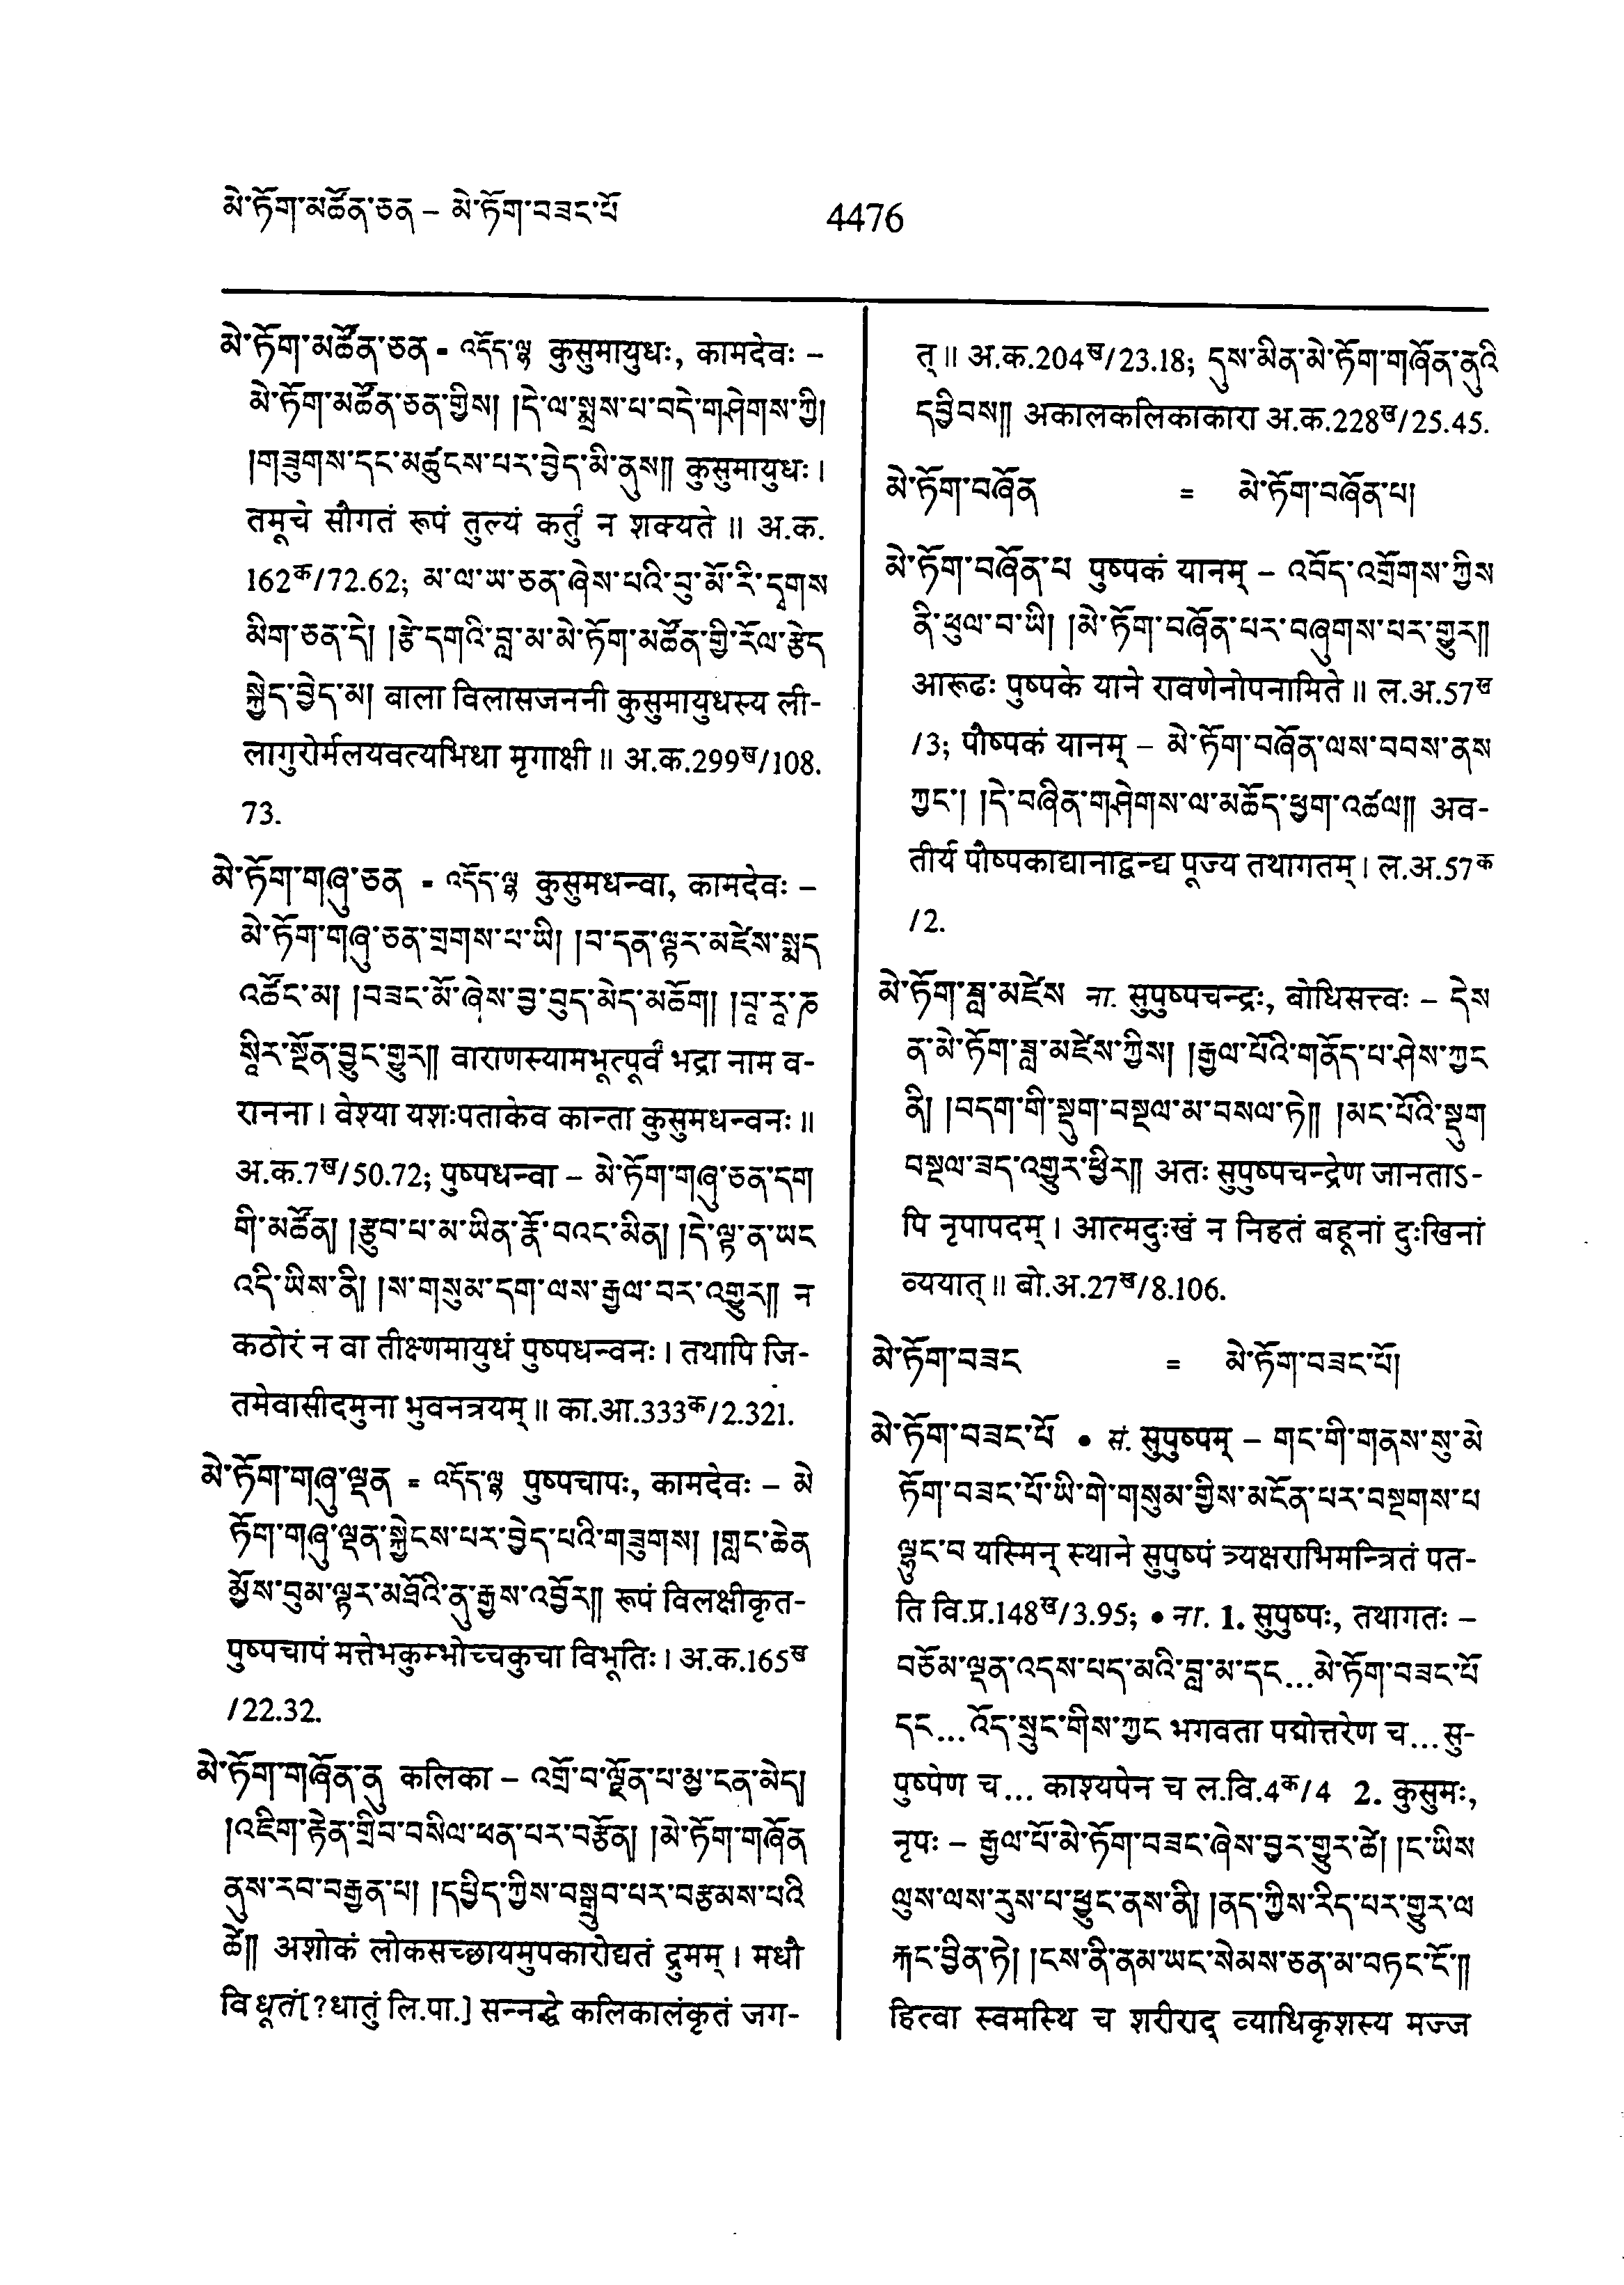 མེ་ཏོག་མཚོན་ཅན – མེ་ཏོག་བཟང་པོ
4476
མེ་ཏོག་མཚོན་ཅན = འདོད་ལྷ कुसुमायुधः, कामदेवः –
མེ་ཏོག་མཚོན་ཅན་གྱིས། །དེ་ལ་སྨྲས་པ་བདེ་གཤེགས་ཀྱི།
།གཟུགས་དང་མཚུངས་པར་བྱེད་མི་ནུས།། कुसुमायुधः ।
तमूचे सौगतं रूपं तुल्यं कर्तुं न शक्यते ॥ अ.क.
162क/72.62; མ་ལ་ཡ་ཅན་ཞེས་པའི་བུ་མོ་རི་དྭགས
མིག་ཅན་དེ། །རྩེ་དགའི་བླ་མ་མེ་ཏོག་མཚོན་གྱི་རོལ་རྩེད
སྐྱེད་བྱེད་མ། बाला विलासजननी कुसुमायुधस्य ली-
लागुरोर्मलयवत्यभिधा मृगाक्षी ॥ अ.क.299ख/108.
73.
མེ་ཏོག་གཞུ་ཅན = འདོད་ལྷ कुसुमधन्वा, कामदेवः –
མེ་ཏོག་གཞུ་ཅན་གྲགས་པ་ཡི། །བ་དན་ལྟར་མཛེས་སྨད
འཚོང་མ། །བཟང་མོ་ཞེས་བྱ་བུད་མེད་མཆོག། །བཱ་རཱ་ཎ
སཱིར་སྔོན་བྱུང་གྱུར།། वाराणस्यामभूत्पूर्वं भद्रा नाम व-
रानना । वेश्या यशःपताकेव कान्ता कुसुमधन्वनः ॥
अ.क.7ख/50.72; पुष्पधन्वा – མེ་ཏོག་གཞུ་ཅན་དག
གི་མཚོན། །རྩུབ་པ་མ་ཡིན་རྣོ་བའང་མིན། །དེ་ལྟ་ན་ཡང
འདི་ཡིས་ནི། །ས་གསུམ་དག་ལས་རྒྱལ་བར་འགྱུར།། न
कठोरं न वा तीक्ष्णमायुधं पुष्पधन्वनः । तथापि जि-
तमेवासीदमुना भुवनत्रयम् ॥ का.आ.333क/2.321.
མེ་ཏོག་གཞུ་ལྡན = འདོད་ལྷ पुष्पचापः, कामदेवः – མེ
ཏོག་གཞུ་ལྡན་སྐྱེངས་པར་བྱེད་པའི་གཟུགས། །གླང་ཆེན
མྱོས་བུམ་ལྟར་མཐོའི་ནུ་རྒྱས་འབྱོར།། रूपं विलक्षीकृत-
पुष्पचापं मत्तेभकुम्भोच्चकुचा विभूतिः । अ.क.165ख
/22.32.
མེ་ཏོག་གཞོན་ནུ कलिका – འགྲོ་བ་ལྗོན་པ་མྱ་ངན་མེད།
།འཇིག་རྟེན་གྲིབ་བསིལ་ཕན་པར་བརྩོན། །མེ་ཏོག་གཞོན
ནུས་རབ་བརྒྱན་པ། །དཔྱིད་ཀྱིས་བསྒྲུབ་པར་བརྩམས་པའི
ཚེ།། अशोकं लोकसच्छायमुपकारोद्यतं द्रुमम् । मधौ
विधूतं[?धातुं लि.पा.] सन्नद्धे कलिकालंकृतं जग-
त् ॥ अ.क.204ख/23.18; དུས་མིན་མེ་ཏོག་གཞོན་ནུའི
དབྱིབས།། अकालकलिकाकारा अ.क.228ख/25.45.
མེ་ཏོག་བཞོན = མེ་ཏོག་བཞོན་པ།
མེ་ཏོག་བཞོན་པ पुष्पकं यानम् – འབོད་འགྲོགས་ཀྱིས
ནི་ཕུལ་བ་ཡི། །མེ་ཏོག་བཞོན་པར་བཞུགས་པར་གྱུར།།
आरूढः पुष्पके याने रावणेनोपनामिते ॥ ल.अ.57ख
/3; पौष्पकं यानम् – མེ་ཏོག་བཞོན་ལས་བབས་ནས
ཀྱང་། །དེ་བཞིན་གཤེགས་ལ་མཆོད་ཕྱག་འཚལ།། अव-
तीर्य पौष्पकाद्यानाद्वन्द्य पूज्य तथागतम् । ल.अ.57क
/2.
མེ་ཏོག་ཟླ་མཛེས ना. सुपुष्पचन्द्रः, बोधिसत्त्वः – དེས
ན་མེ་ཏོག་ཟླ་མཛེས་ཀྱིས། །རྒྱལ་པོའི་གནོད་པ་ཤེས་ཀྱང
ནི། །བདག་གི་སྡུག་བསྔལ་མ་བསལ་ཏེ།། །མང་པོའི་སྡུག
བསྔལ་ཟད་འགྱུར་ཕྱིར།། अतः सुपुष्पचन्द्रेण जानताऽ-
पि नृपापदम् । आत्मदुःखं न निहतं बहूनां दुःखिनां
व्ययात् ॥ बो.अ.27ख/8.106.
མེ་ཏོག་བཟང = མེ་ཏོག་བཟང་པོ།
མེ་ཏོག་བཟང་པོ • सं. सुपुष्पम् – གང་གི་གནས་སུ་མེ
ཏོག་བཟང་པོ་ཡི་གེ་གསུམ་གྱིས་མངོན་པར་བསྔགས་པ
ལྷུང་བ यस्मिन् स्थाने सुपुष्पं त्र्यक्षराभिमन्त्रितं पत-
ति वि.प्र.148ख/3.95; • ना. 1. सुपुष्पः, तथागतः –
བཅོམ་ལྡན་འདས་པད་མའི་བླ་མ་དང...མེ་ཏོག་བཟང་པོ
དང...འོད་སྲུང་གིས་ཀྱང भगवता पद्मोत्तरेण च...सु-
पुष्पेण च... काश्यपेन च ल.वि.4क/4 2. कुसुमः,
नृपः – རྒྱལ་པོ་མེ་ཏོག་བཟང་ཞེས་བྱར་གྱུར་ཚེ། །ང་ཡིས
ལུས་ལས་རུས་པ་ཕྱུང་ནས་ནི། །ནད་ཀྱིས་རིད་པར་གྱུར་ལ
རྐང་བྱིན་ཏེ། །ངས་ནི་ནམ་ཡང་སེམས་ཅན་མ་བཏང་ངོ་།།
हित्वा स्वमस्थि च शरीराद् व्याधिकृशस्य मज्ज